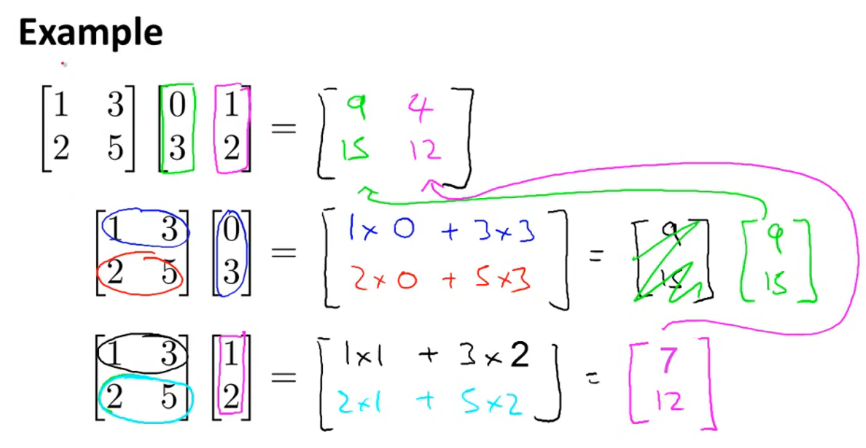 Example
[1 3; 2 5] [0 1; 3 2] = [9 4; 15 12]
[1 3; 2 5] [0; 3] = [1×0 + 3×3; 2×0 + 5×3] = [9; 15] [9; 15]
[1 3; 2 5] [1; 2] = [1×1 + 3×2; 2×1 + 5×2] = [7; 12]